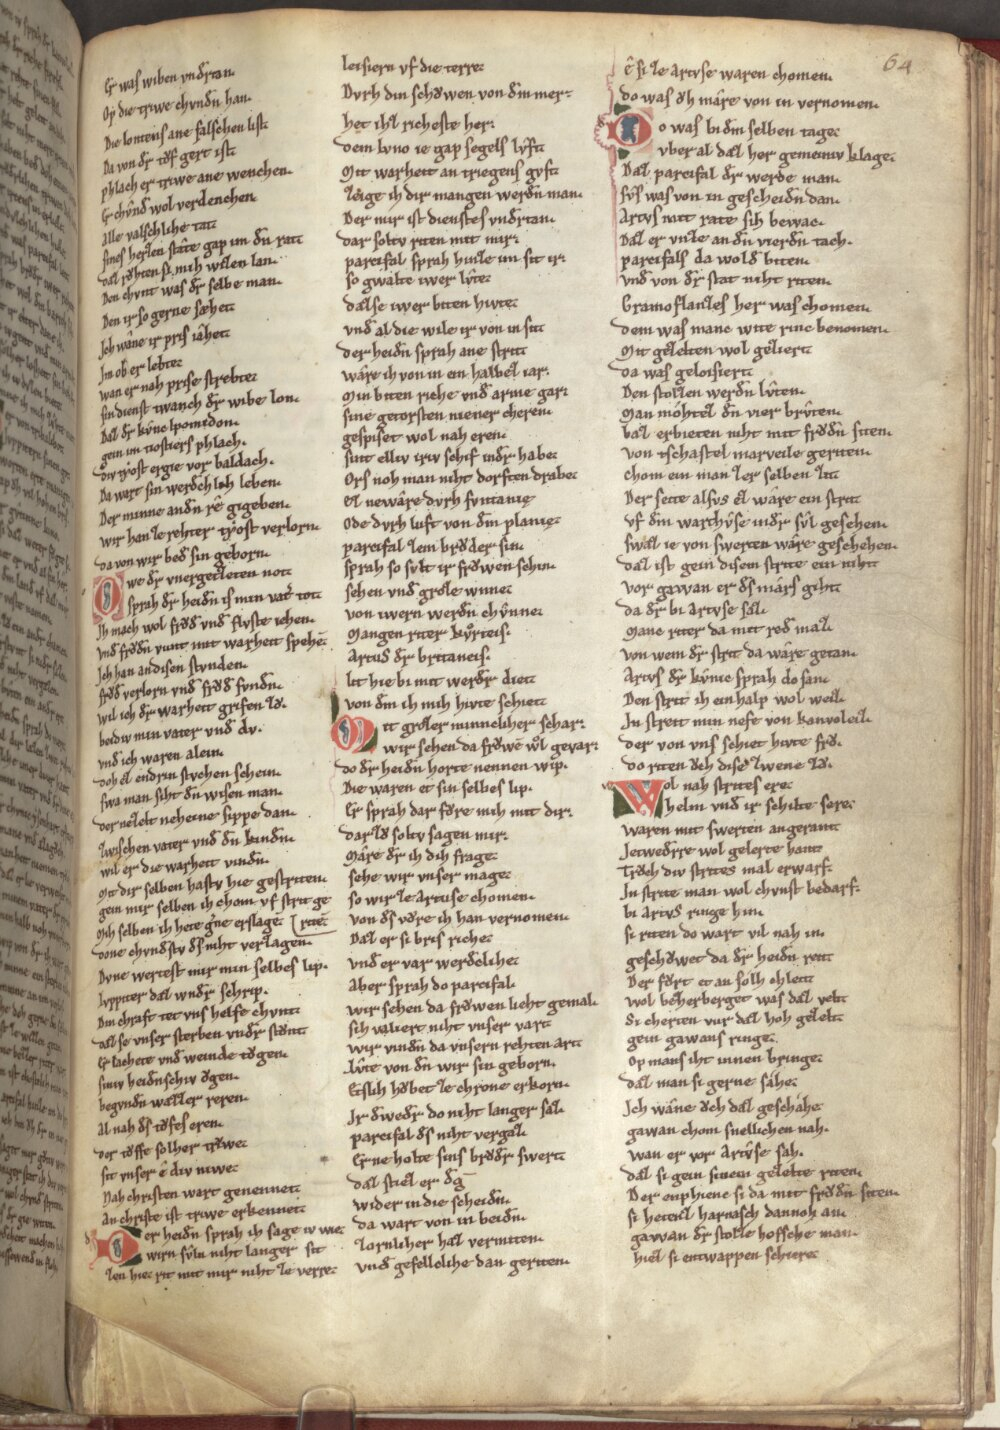 64
Er was wiben vndr̄tan.
Op die triwe chvndn̄ han.
Die lontens ane falschen list.
Da von dr̄ tof gert ist.
phlach er triwe ane wenchen.
Er chvnd wol verdenchen.
Alle valschliche tatt
sines herzen stæte gap im dn̄ ratt
daz rehten si mich wizen lan.
Den chvnt was dr̄ selbe man.
Den ir so gerne sæhet
Jch wâne ir pris iæhet
Jm ob er lebte
wan er nah prise strebte
sin dienst twanch dr̄ wibe lon.
Daz dr̄ kvnec Jpomidon.
gein im tiostiers phlach.
div tiost ergie vor baldach.
Da wart sin werdchlich leben.
Der minne an den rê gigeben.
wir han ze rehter tiost verlorn
da von wir bed sin geborn.
Owe dr̄ vnergetzeten nott
sprah dr̄ heidn̄ is min vatr̄ tot
Jh mach wol frŏd vnd flvste iehen.
vnd frŏdn̄ funt mit warheit spehē.
Jch han an disen stvnden.
frŏd verlorn vnd frŏd fvndn̄.
wil ich dr̄ warheit grifen zŏ.
beidiv min vater vnd dv.
vnd ich waren al ein.
doh ez endrin stvchen schein.
swa man siht dn̄ wisen man.
der nezelt neheine sippe dan.
Zwischen vater vnd dn̄ kindn̄.
wil er die warheit vindn̄.
Mit dir selben hastv hie gestriten.
gein mir selben ich chom vf strit ge
Mih selben ich hete gn̄e erslagē (riten
done chvndstv ds̄ niht verzagen.
Dvne wertest mir min selbes lip.
Jvppiter daz wndr̄ schrip.
Din chraft tet vns helfe chvnt
daz se vnser sterben vndr̄ stŏnt
Er lachete vnd weinde tŏgen.
siniv heidnschiv ŏgen.
begvndn̄ wazzer reren.
Al nah ds̄ tŏfes eren.
der tŏffe solher triwe
sit vnser ê div niwe
Nah christen wart genennet.
An christe ist triwe erkennet
Der heidn̄ sprah ih sage iv wie
wirn svln niht langer sit
zen hie rit mit mir niht ze verre
leisiern vf die terre
Dvrh din schŏwen von dm̄ mer
het ihz richeste her
dem Jvno ie gap segels lvft
Mit warheit an triegens gvft
zeige ih dir mangen werdn̄ man.
Der mir ist dienstes vndr̄tan.
dar soltv riten mit mir
parcifal sprah hat ie im sit ir
so gwalte iwer lvte
daz se iwer biten hivte
vnd al die wile ir von in sit
der heidn̄ sprah ane strit
wære ich von in ein halbez iar
Min biten riche vnd arme gar
sine getorsten niener cheren
gespiset wol nah eren.
sint elliv iriv schif indr̄ habe
Ors noh man niht dorften drabe
Ez newære dvrh fvntanie
Ode dvrh luft von dm̄ planie
parcifal zem brŏder sin
sprah so svlt ir frŏwen schin
sehen vnd groze winne
von iwern werdn̄ chvnne
Mangen riter kvrteis.
Artus dr̄ britaneis.
lit hie bi mit werdr̄ diet
von dm̄ ih mich hivte schiet
Mit grozer minnechlicher schar
wir sehen da frŏwē wol gevar
do dr̄ heidn̄ horte nennen wip.
Die waren et sin selbes lip.
Er sprah dar fŏre mih mit dir
dar zŏ soltv sagen mir
Mære dr̄ ih dih frage
sehe wir vnser mage
so wir ze Artuse chomen
von ds̄ vŏre ich han vernomen
Daz er si bris riche
vnd er var werdeliche
Aber sprah do parcifal
wir sehen da frŏwen lieht gemal
sih valiert niht vnser vart
wir vindn̄ da vnsern rehten art
Lvte von dn̄ wir sin geborn.
Etslih hŏbet ze chrone erkorn.
Jr dwedr̄ do niht langer saz.
parcifal ds̄ niht vergaz
Erne holte sins brŏdr̄ swert
daz stiez er
wider in die scheidn̄.
da wart von in beidn̄.
Zornlicher haz vermiten.
vnd geselleliche dan geriten.
ê si ze artvse waren chomen
do was ŏh mære von in vernomen.
Do was bi dm̄ selben tage
vber al daz her gemeiniv klage
Daz parcifal dr̄ werde man.
svs was von in gescheidn̄ dan.
Artvs mit rate sih bewac.
Daz er vnze an dn̄ vierdn̄ tach.
parcifals da wold biten
vnd von dr̄ stat niht riten.
Gramoflanzes her was chomen
dem was mane wite rinc benomen
Mit gezelten wol geziert
da was geloisiert
Den stolzen werdn̄ lvten.
Man mohtez dn̄ vier brvten.
baz erbieten niht mit frŏdn̄ siten
von tschastel marveile geriten
chom ein man ze selben zit
Der seite alsvs ez wære ein strit
vf dm̄ warthvse indr̄ svl gesehen
swaz ie von swerten wære geschehen
daz ist gein disem strite ein niht
vor gawan er ds̄ mærs giht
da dr̄ bi artvse saz
Mane riter da mit red maz
von wem dr̄ strit da wære getan
Artvs dr̄ kvnic sprah do san
Den strit ih ein halp wol weiz
Jn streit min nefe von kanvoleiz
der von vns schiet hivte frŏ.
do riten ŏch dise zwene zŏ
Wol nah strites ere
helm vnd ir schilte sere
waren mit swerten angerant
Jetwedrre wol gelerte hant
Trŏch div strites mal erwarf
Jn strite man wol chvnst bedarf
bi artvs ringe hin
si riten do wart vil nah in
geschŏwet da dr̄ heidn̄ reit
Der fŏrt et an solh chleit
wol beherberget was daz velt
Si cherten vvr daz hoh gezelt
gein gawans ringe
Op mans iht innen bringe
daz man si gerne sæhe
Jch wæne ŏch daz geschæhe
gawan chom snellichen nah.
wan er vor Artvse sah.
daz si gein sinem gezelte riten
Der enphienc si da mit frŏdn̄ siten
si heten harnasch dannoh an
gawan dr̄ stolze hofsche man
hiez si entwappen schiere